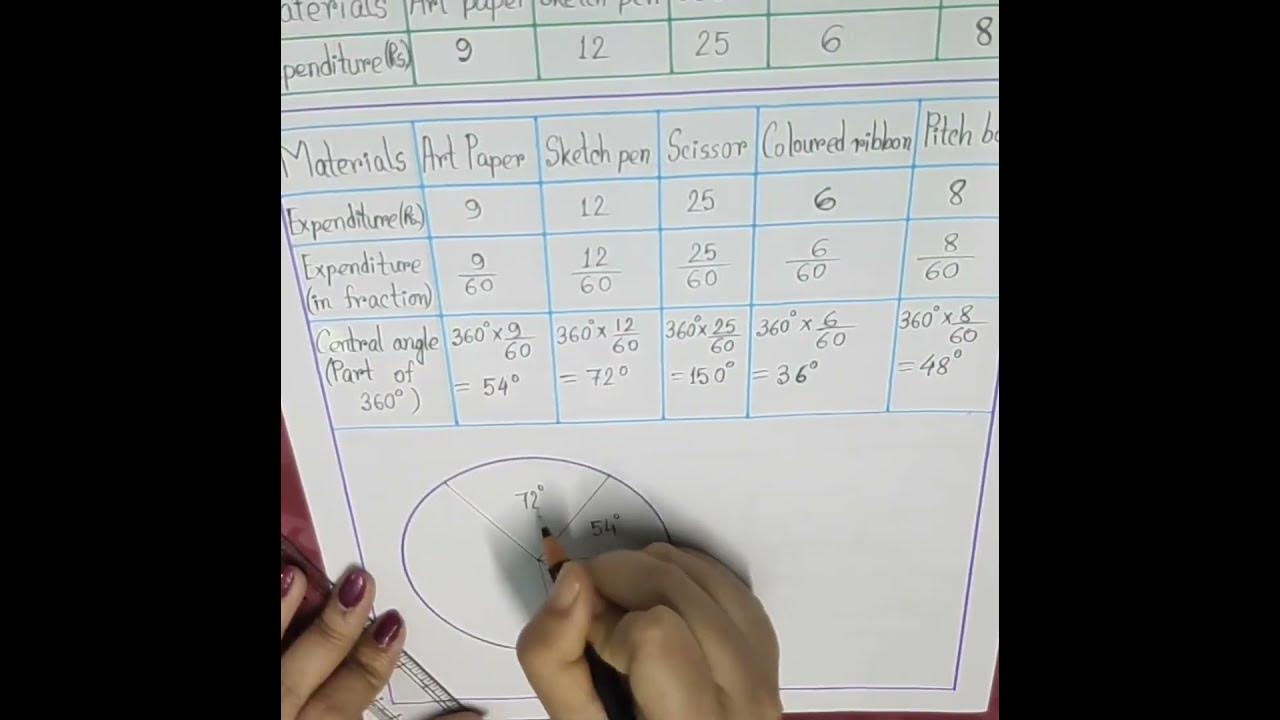 aterials Art paper Sketch pen
penditure(Rs) 9 12 25 6 8
Materials Art Paper Sketch pen Scissor Coloured ribbon Pitch bo
Expenditure(Rs.) 9 12 25 6 8
Expenditure (in fraction) 9/60 12/60 25/60 6/60 8/60
Central angle (Part of 360°) 360°×9/60 360°×12/60 360°×25/60 360°×6/60 360°×8/60
= 54° = 72° = 150° = 36° = 48°
72°
54°